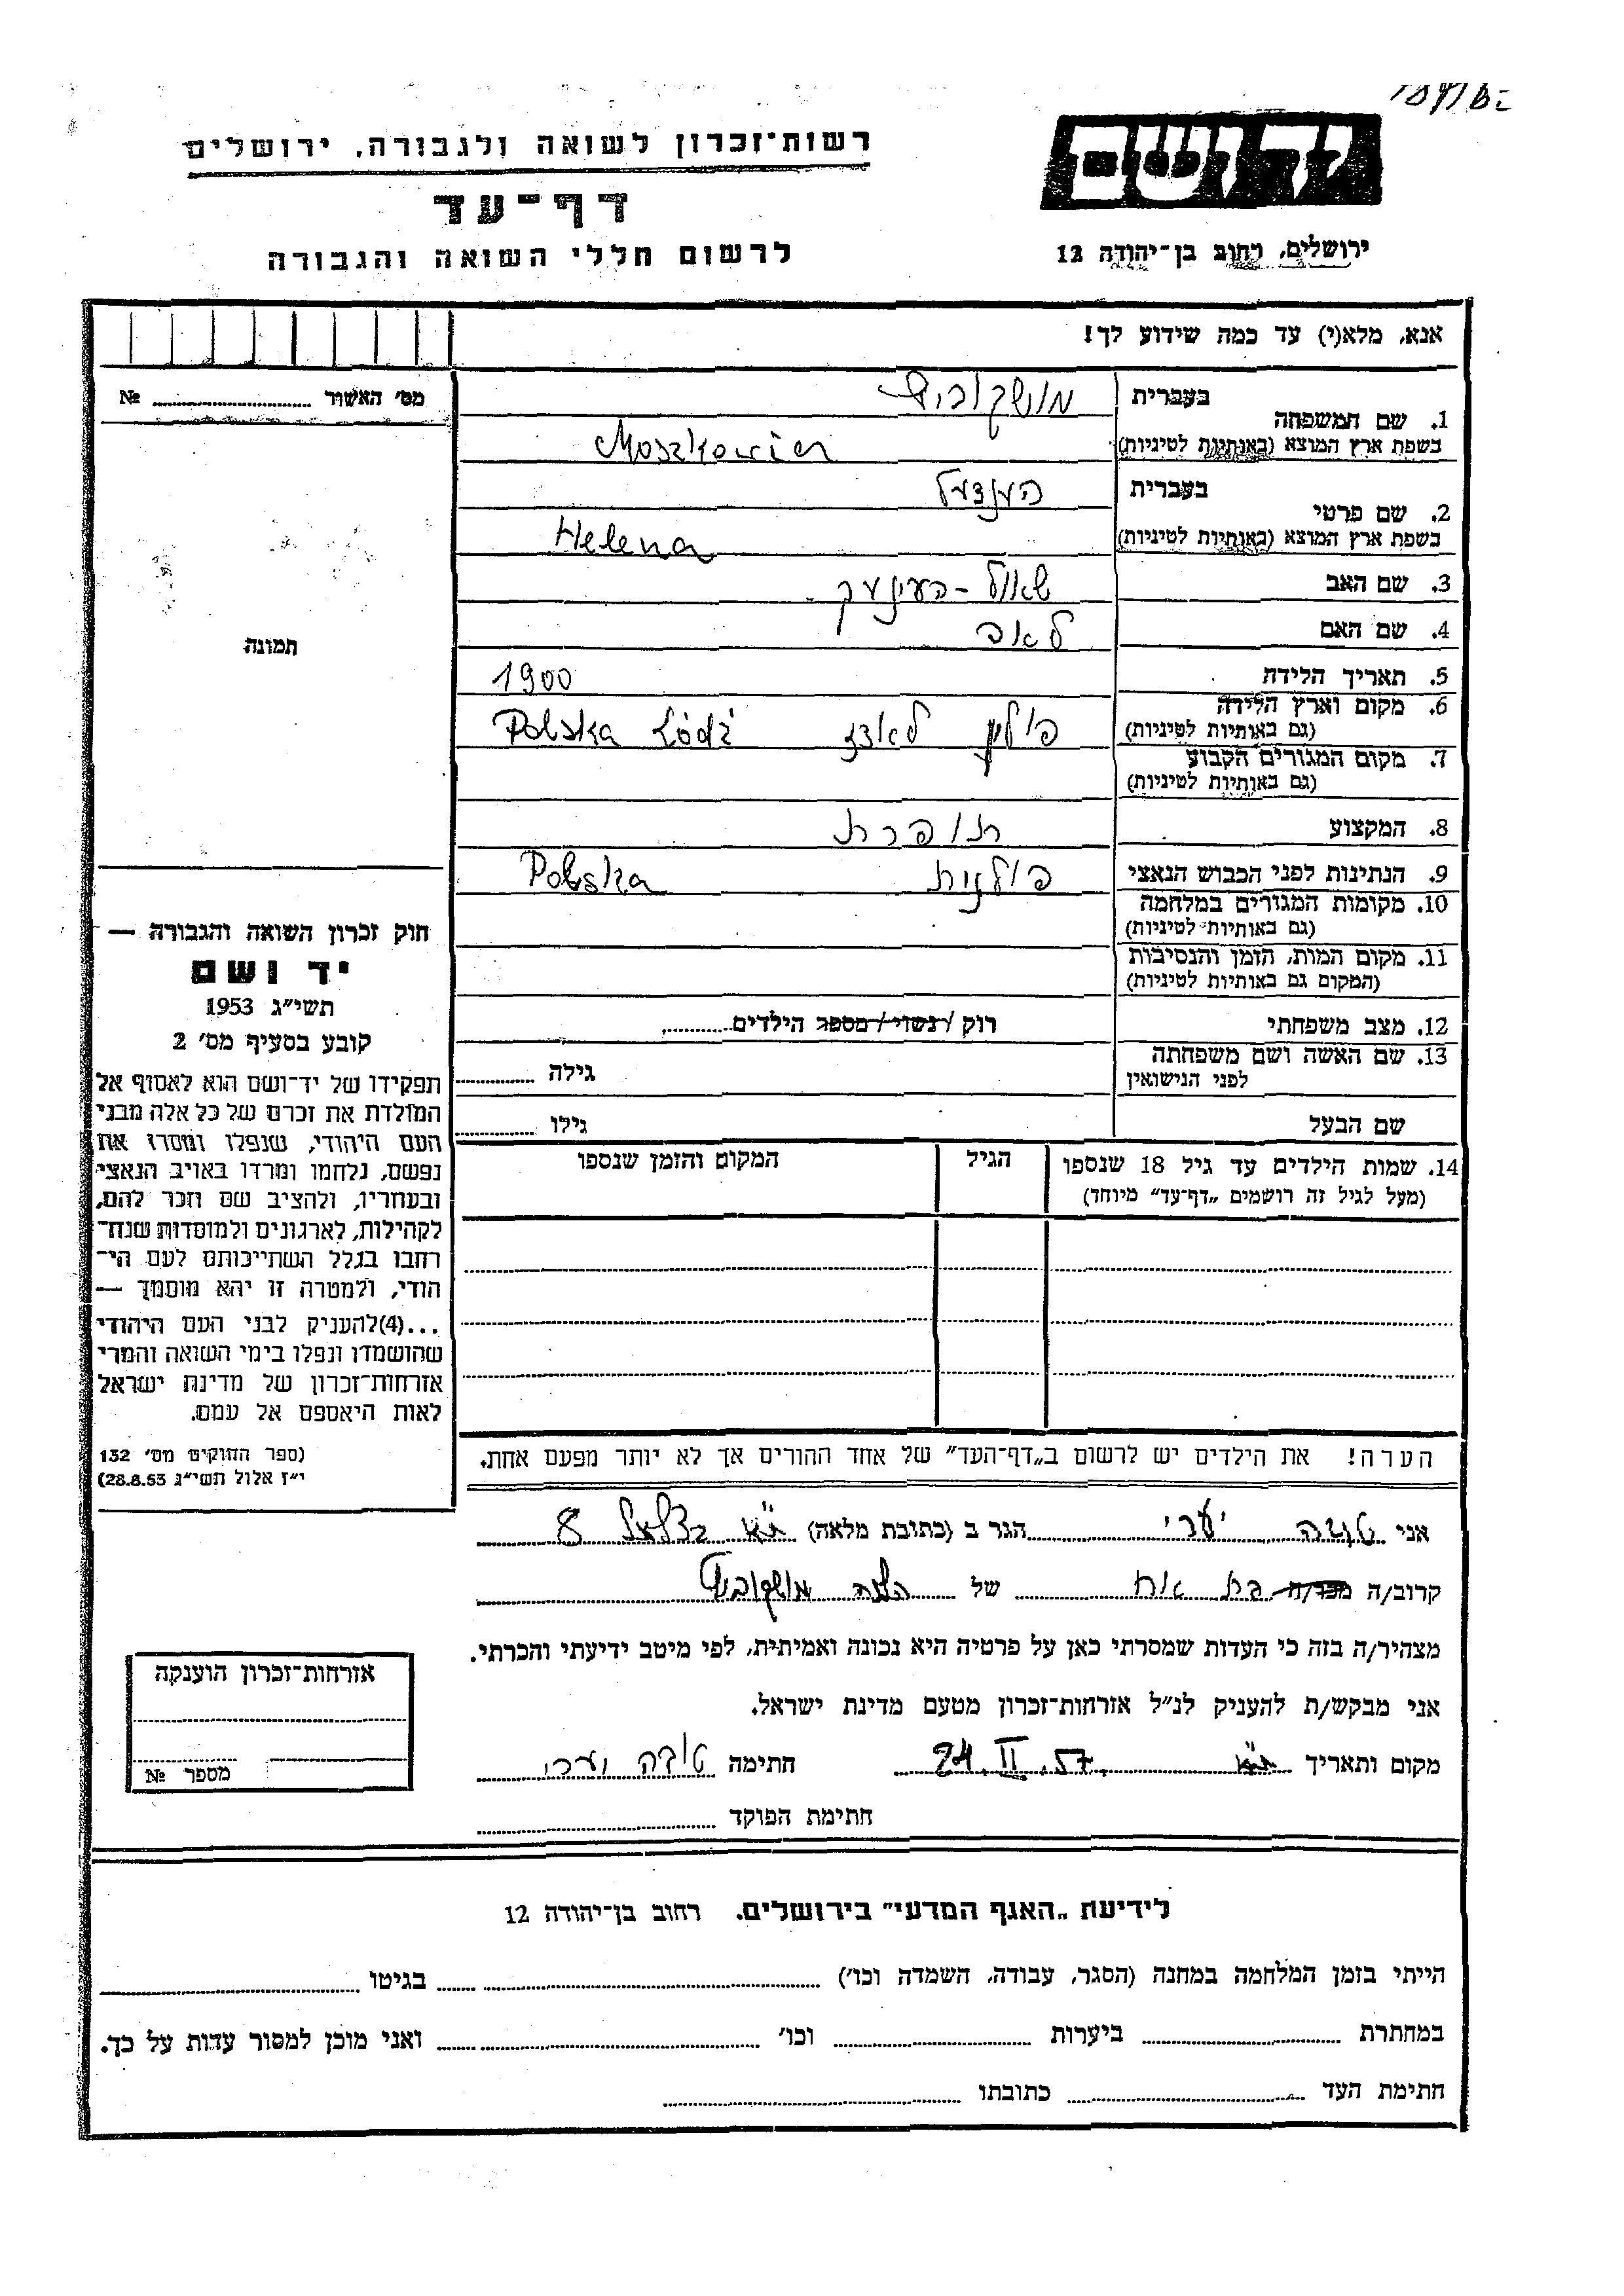 יד ושם
ירושלים, רחוב בן-יהודה 12
רשות-זכרון לשואה ולגבורה, ירושלים
דף-עד
לרשום חללי השואה והגבורה
אנא, מלא(י) עד כמה שידוע לך!
מס׳ האשור № 
תמונה
1. שם המשפחה בעברית מושקוביץ
בשפת ארץ המוצא (באותיות לטיניות) Moszkowicz
2. שם פרטי בעברית הענדעל
בשפת ארץ המוצא (באותיות לטיניות) Helena
3. שם האב שאול -העינעך
4. שם האם לאה
5. תאריך הלידה 1900
6. מקום וארץ הלידה פולין לאדז Polska Łódź
(גם באותיות לטיניות)
7. מקום המגורים הקבוע
(גם באותיות לטיניות)
8. המקצוע תופרת
9. הנתינות לפני הכבוש הנאצי פולנית Polska
10. מקומות המגורים במלחמה
(גם באותיות לטיניות)
11. מקום המות, הזמן והנסיבות
(המקום גם באותיות לטיניות)
12. מצב משפחתי רווק / נשוי / מספר הילדים
13. שם האשה ושם משפחתה
לפני הנישואין גילה
שם הבעל גילו
14. שמות הילדים עד גיל 18 שנספו הגיל המקום והזמן שנספו
(מעל לגיל זה רושמים „דף-עד״ מיוחד)
הערה! את הילדים יש לרשום ב„דף-העד״ של אחד ההורים אך לא יותר מפעם אחת.
חוק זכרון השואה והגבורה —
יד ושם
תשי״ג 1953
קובע בסעיף מס׳ 2
תפקידו של יד-ושם הוא לאסוף אל
המולדת את זכרם של כל אלה מבני
העם היהודי, שנפלו ומסרו את
נפשם, נלחמו ומרדו באויב הנאצי
ובעוזריו, ולהציב שם וזכר להם,
לקהילות, לארגונים ולמוסדות שנח-
רבו בגלל השתייכותם לעם הי-
הודי, ולמטרה זו יהא מוסמך —
...(4)להעניק לבני העם היהודי
שהושמדו ונפלו בימי השואה והמרי
אזרחות-זכרון של מדינת ישראל
לאות היאספם אל עמם.
(ספר החוקים מס׳ 132
י״ז אלול תשי״ג 28.8.53)
אני טובה יערי הגר ב (כתובת מלאה) ת״א בצלאל 8
קרוב/ה מכר/ה בת אח של הלנה מושקוביץ
מצהיר/ה בזה כי העדות שמסרתי כאן על פרטיה היא נכונה ואמיתית, לפי מיטב ידיעתי והכרתי.
אני מבקש/ת להעניק לנ״ל אזרחות-זכרון מטעם מדינת ישראל.
מקום ותאריך ת״א 24.II.57 חתימה טובה יערי
חתימת הפוקד
אזרחות-זכרון הוענקה
מספר №
לידיעת „האגף המדעי״ בירושלים, רחוב בן-יהודה 12
הייתי בזמן המלחמה במחנה (הסגר, עבודה, השמדה וכו׳) בגיטו
במחתרת ביערות וכו׳ ואני מוכן למסור עדות על כך.
חתימת העד כתובתו